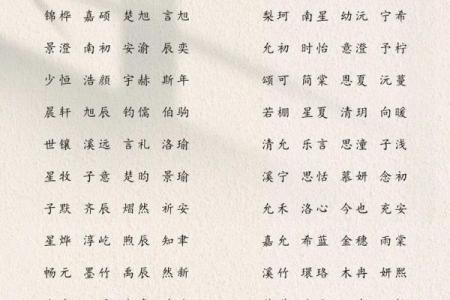 锦桦 嘉硕 楚旭 言旭
景澄 南初 安渝 辰奕
少恒 浩颜 宇赫 斯年
晨轩 旭辰 钧儒 伯驹
世镶 溪远 言礼 洛瑜
星牧 子意 楚昀 景瑜
子默 齐辰 熠然 祈安
星烨 淳屹 煦辰 知聿
畅元 墨竹 禹辰 然新
梨珂 南星 幼沅 宁希
允初 时怡 意澄 予柠
颂可 简棠 恩夏 沅蔓
若棚 星夏 清玥 向暖
清允 乐言 思潼 子浅
溪宁 思恬 慕妍 念初
允禾 洛心 今也 充安
嘉允 希蓝 金穗 雨棠
溪竹 環珞 木冉 妍熙